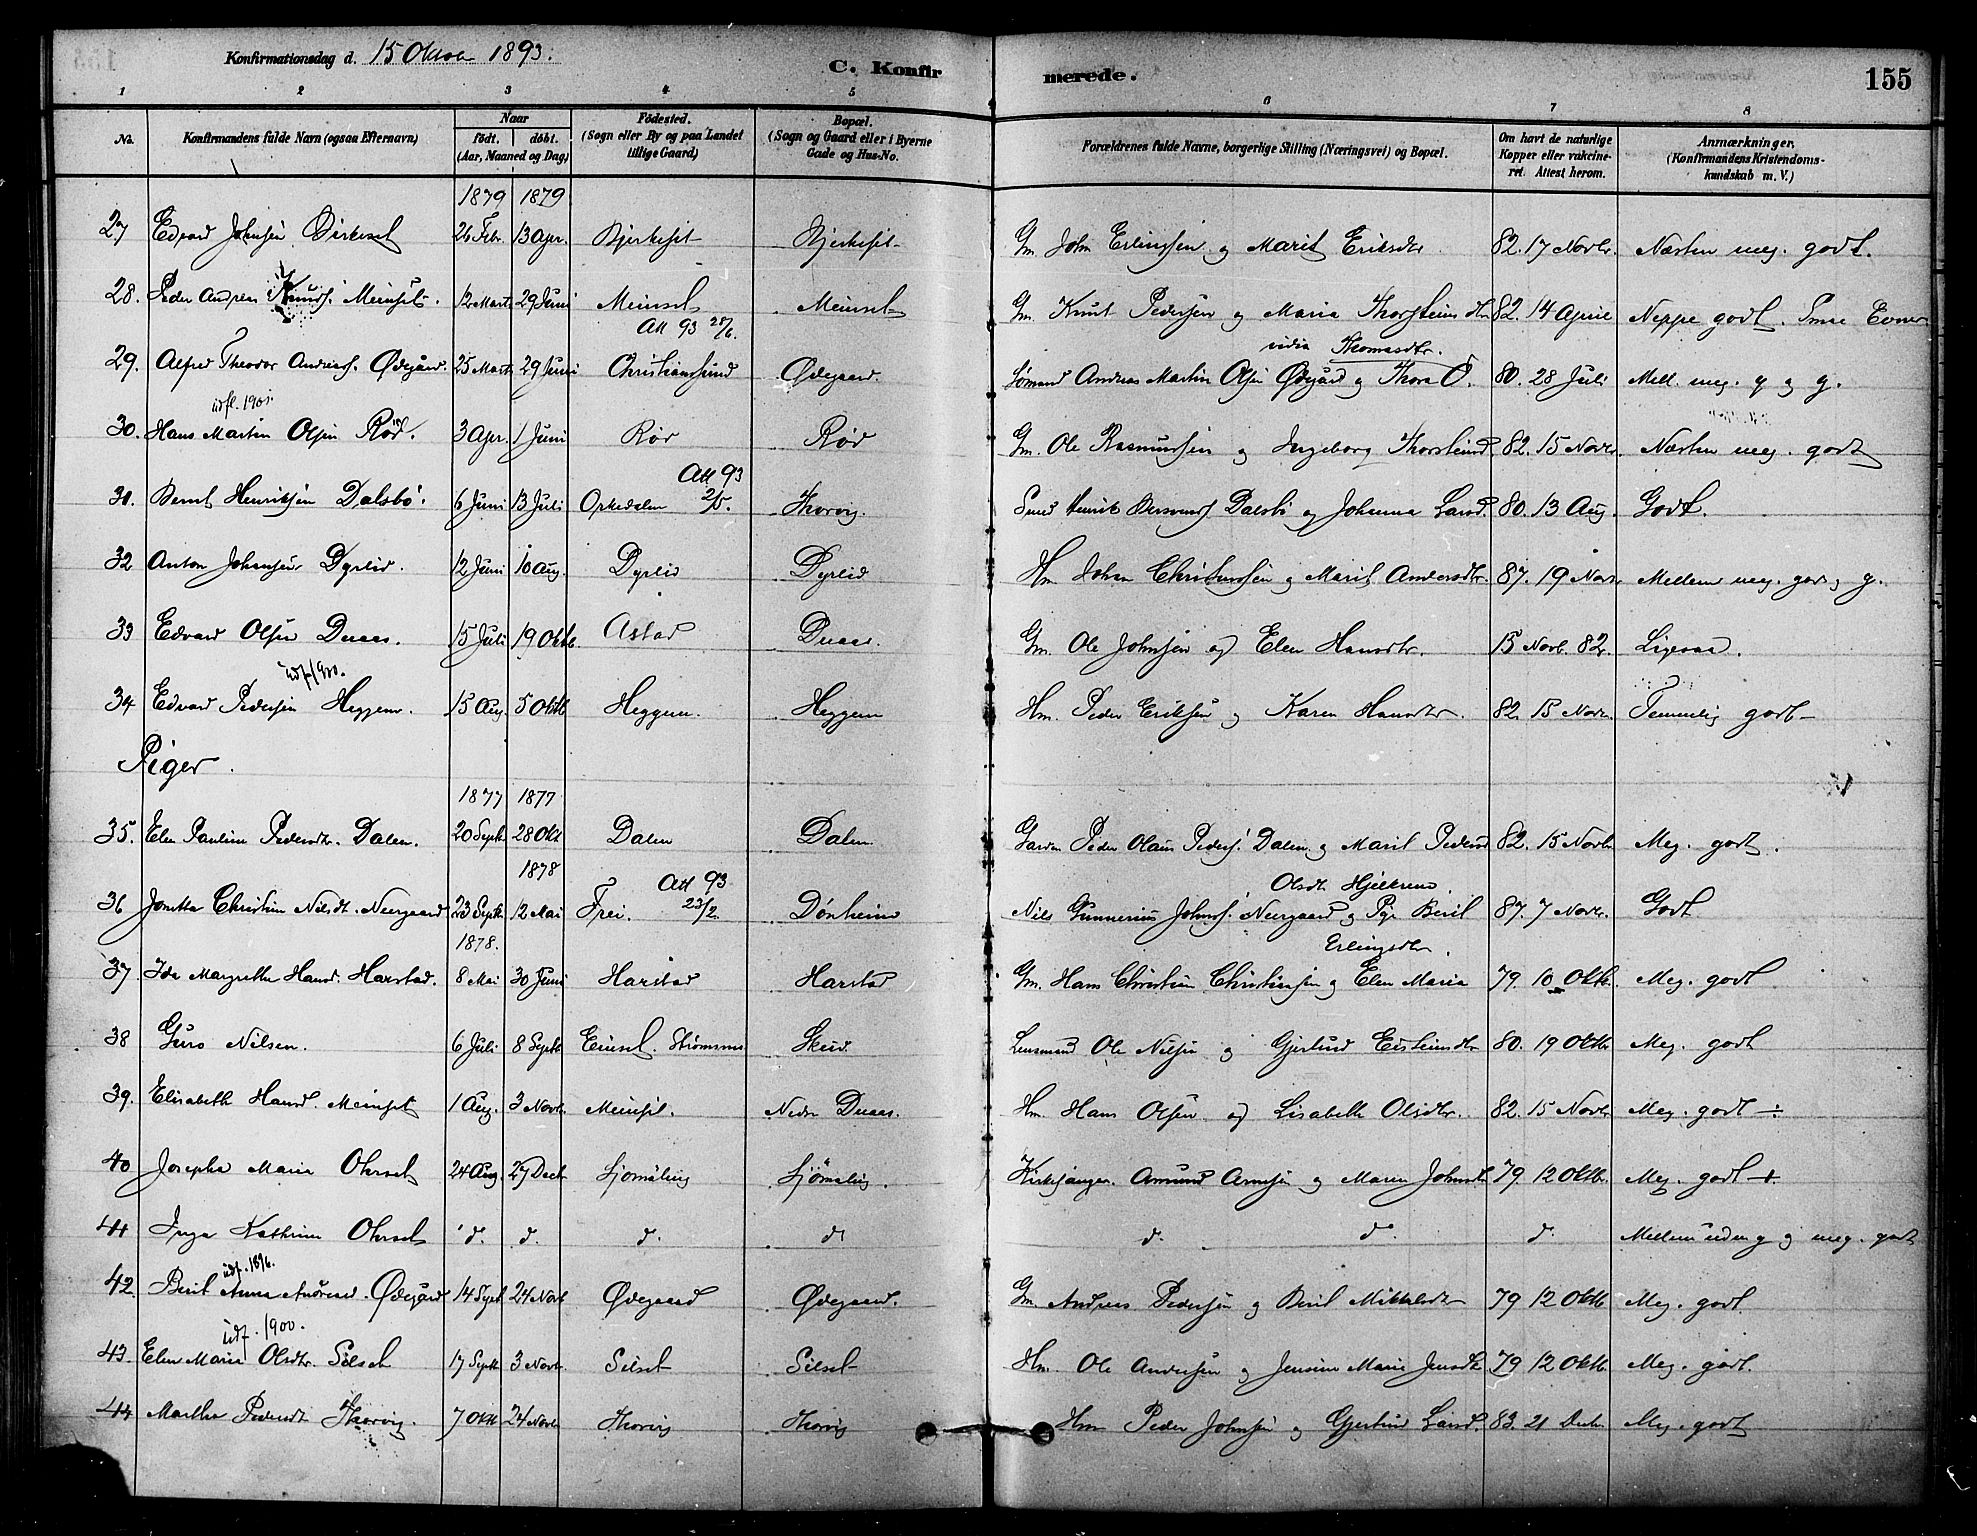 Konfirmationsdag d. 15 Oktober 1893.
C. Konfir merede.
155
1 2 3 4 5 6 7 8
No. Konfirmandens fulde Navn (ogsaa Efternavn) Naar født. døbt. (Aar, Maaned og Dag) Fødested. (Sogn eller By og paa Landet tillige Gaard) Bopæl. (Sogn og Gaard eller i Byerne Gade og Hus-No. Forældrenes fulde Navne, borgerlige Stilling (Næringsvei) og Bopæl. Om havt de naturlige Kopper eller vakcineret. Attest herom. Anmærkninger. (Konfirmandens Kristendomskundskab m. V.)
1879 1879
27 Edvard Johnsen Birkeset 26 Febr. 13 Apr. Bjerkeset Bjerkeset Gm. John Erlingsen og Marit Eriksdtr 82. 17 Novbr. Næsten meg. godt.
28. Peder Andreas Knuds. Meinset. 12 Marts 29 Juni Meinset Meinset Gm. Knut Pedersen og Maria Thorsteinsdtr 82. 14 April Neppe godt. Smaa Evner
Att 93 28/6.
29. Alfred Theodor Andreass. Ødegård. 25 Marts 29 Juni Christiansund Ødegaard. Sømand Andreas Martin Olsen Ødegård og Thora O. 80. 28 Juli Mell. meg. g og g.
Thomasdtr.
udfl. 1901.
30. Hans Martin Olsen Rød. 3 Apr. 1 Juni Rød Rød Gm. Ole Rasmussen og Ingeborg Thorsteinsd 82. 15 Novbr. Næsten meg. godt
Att 93 2/5.
31. Bernt Henriksen Dalsbø. 6 Juni 13 Juli Orkedalen Thorvig. Henrik Dalsbø og Johanna Larsd. 80. 13 Aug. Godt.
32 Anton Johansen Dyrlid. 12 Juni 10 Aug. Dyrlid Dyrlid Hm Johan Christensen og Marit Andersdtr. 87. 19 Novbr Mellem meg. godt og g.
33 Edvard Olsen Duaas. 15 Juli 19 Oktb. Astad Duaas. Gm. Ole Johnsen og Elen Hansdtr. 15 Novb. 82. Ligesaa.
udf 1900.
34 Edvard Pedersen Heggem. 15 Aug. 5 Oktb Heggem. Heggem Hm. Peder Eriksen og Karen Hansdtr. 82. 15 Novbr. Temmelig godt
Piger.
1877 1877
35. Elen Pauline Pedersdtr. Dalen. 20 Septb 28 Okt Dalen Dalen Gaardm Peder Olaus Peders. Dalen og Marit Pedersd 82. 15 Novbr Meg. godt.
1878
Att 93 23/2. Olsdt. Hjelkrem
36 Jonetta Christine Nilsdt. Neergaard 23 Septb 12 Mai Frei. Dønheim Nils Gunnerius Johns. Neergaard og Pige Berit 87. 7 Novbr. Godt
1878. Erlingsdtr.
37 Ida Margrethe Hansd. Harstad. 8 Mai 30 Juni Harstad Harstad Gm. Hans Christian Christiansen og Elen Maria 79. 10 Oktb. Meg. godt
38 Guro Nilsen. 6 Juli 8 Septb Eidset. Strømsnes Skeid. Lensmand Ole Nilsen og Gjertrud Eisteinsdtr 80. 19 Oktb Meg. godt
39. Elisabeth Hansd. Meinset 1 Aug. 3 Novb. Meinset. Nedre Duaas. Hm. Hans Olsen og Lisabeth Olsdtr. 82. 15 Novbr Meg. godt ÷
40 Josepha Maria Ohrset 24 Aug. 27 Decb Ljømåling Ljømåling. Kirkesanger. Amund Arnesen og Maren Johnsdtr 79 12 Oktb. Meg. godt +.
41 Inga Kathrine Ohrset d. d. d. d d. d. d. Mellem uden g og meg. godt
udf. 1896.
42. Berit Anna Andreasd. Ødegård 14 Septb 24 Novb Ødegaard Ødegaard. Gm Andreas Pedersen og Berit Mikkelsdtr 79 12 Oktb Meg. godt.
udf. 1900.
43. Elen Maria Olsdtr. Silset 17 Septb 3 Novb. Silset Silset Hm. Ole Andersen og Jensine Marie Jensdtr 79 12 Oktb. Meg. godt.
44 Martha Pedersdt Thorvig. 7 Oktb 24 Novbr Thorvig Thorvig Hm Peder Johnsen og Gjertrud Larsd. 83. 21 Decbr Meg. godt